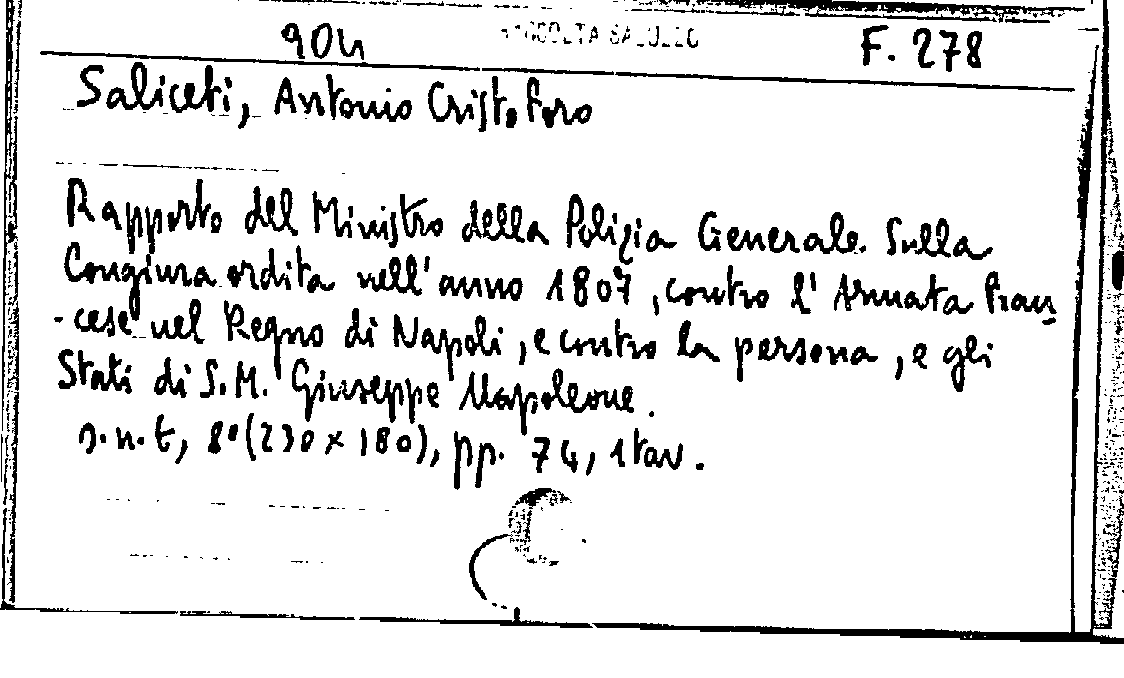 904 RACCOLTA SALUZZO F. 278
Saliceti, Antonio Cristoforo
Rapporto del Ministro della Polizia Generale Sulla
Congiura ordita nell'anno 1807, contro l'Armata Fran
-cese nel Regno di Napoli, e contro la persona, e gli
Stati di S.M. Giuseppe Napoleone.
s.n.t, 8°(230 x 180), pp. 74, 1 tav.